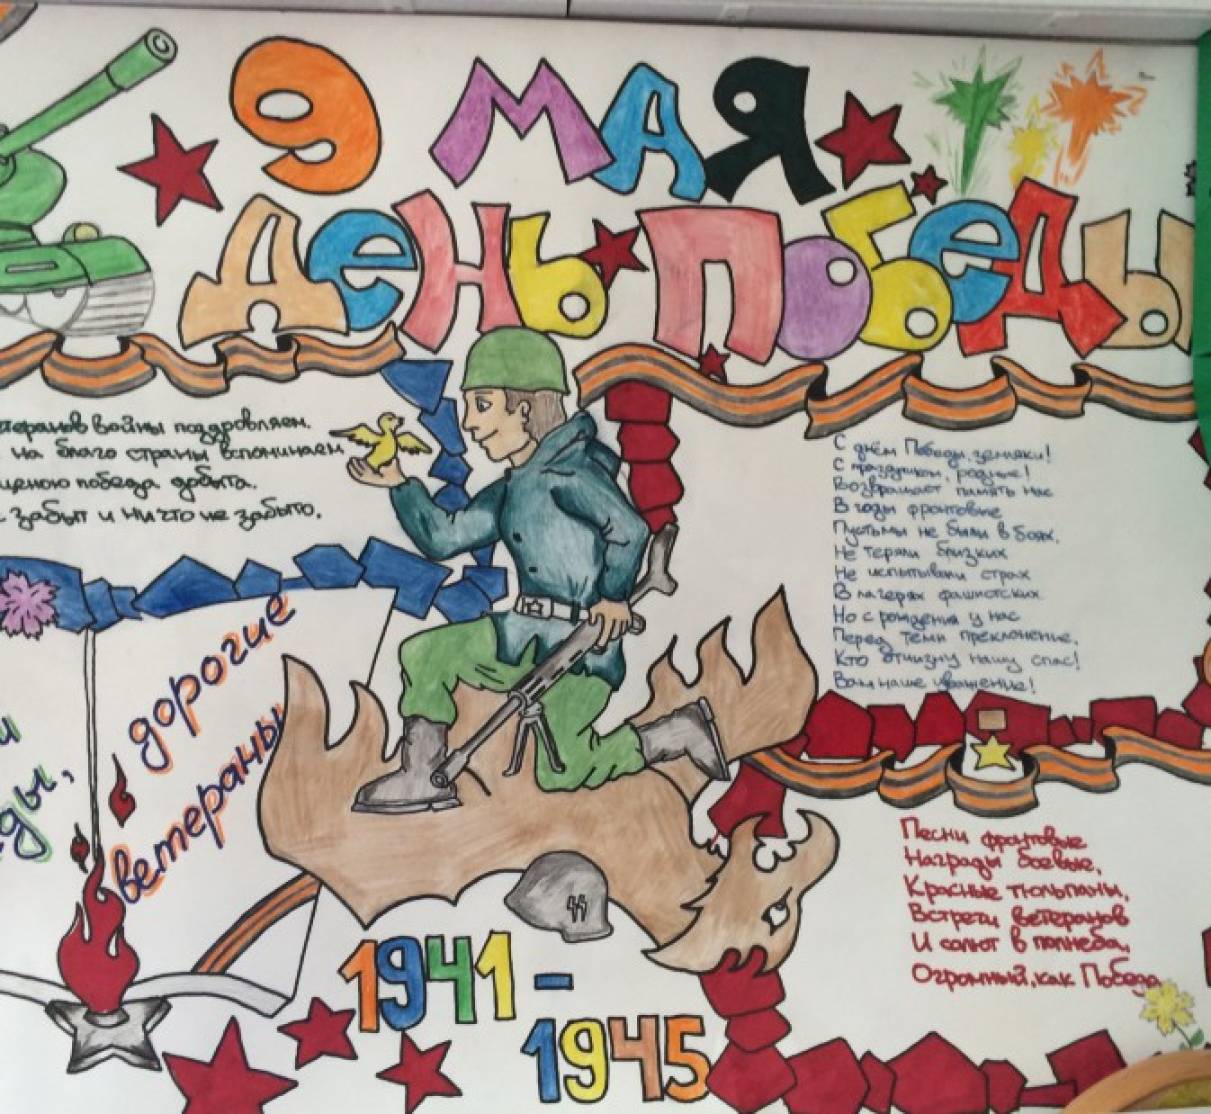 9 МАЯ
ДЕНЬ ПОБЕДЫ
теранов войны поздровляем.
на благо страны вспоминаем
ценою победа добыта.
забыт и ничто не забыто.
дорогие
ветераны
ды,
С днём Победы, земляки!
С праздником, родные!
Возвращает память нас
В годы фронтовые
Пустьмы не были в боях,
Не теряли близких
Не испытывали страх
В лагерях фашистских
Но с рождения у нас
Перед теми преклонение,
Кто отчизну нашу спас!
Вам наше уважение!
Песни фронтовые
Награды боевые,
Красные тюльпаны,
Встречи ветеранов
И салют в полнеба,
Огромный, как Победа
1941 -
1945